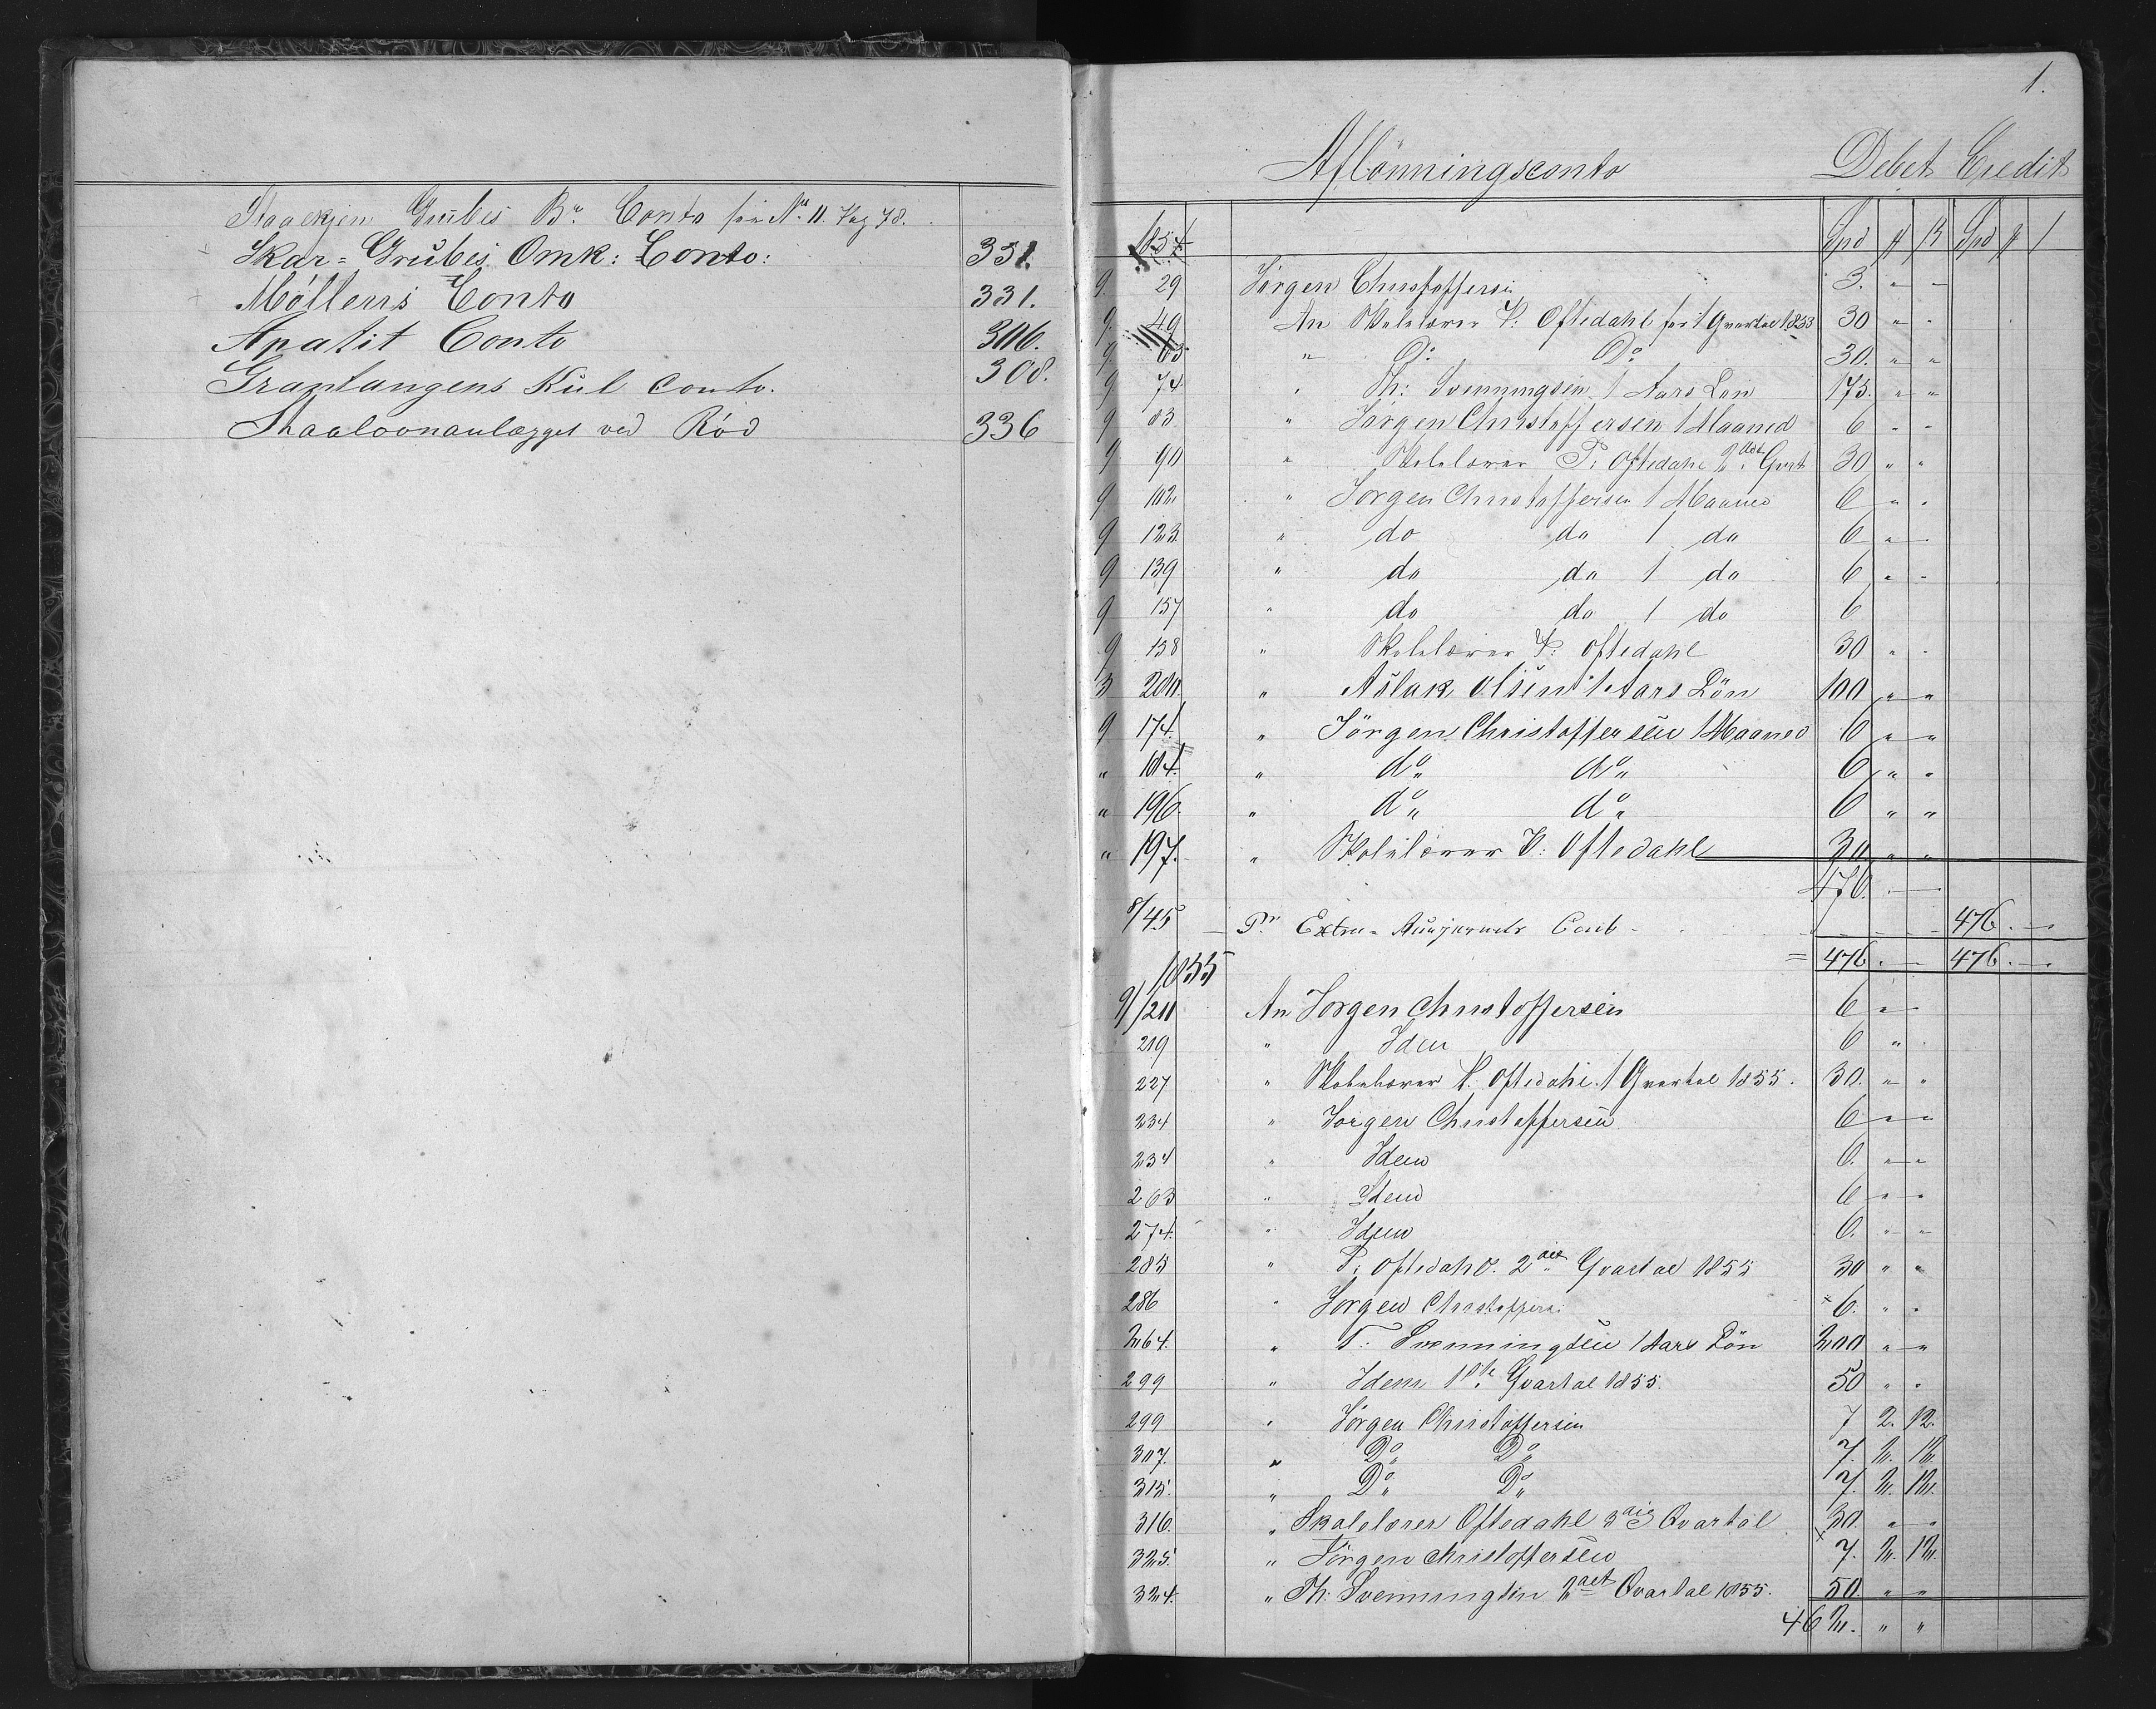 Grubes Conto No 11. Pag 78.
Skar=Grubes Omk: Conto: 331.
Möllens Conto 331.
Apatit Conto 306.
Grantangens Kul Conto. 308.
ved Röd 336
1.
Aflönningsconto Debet Credit
1854 Spd Spd
9. 29 Jörgen Christoffersen 3. " "
9. 49 An Skolelærer P: Oftedahl for 1 Qvartal 1853 30 " "
9 63 " Do Do 30. " "
9 74 " Th: Svenningsen 1 Aars Lön 175. " "
9 83 " Jörgen Christoffersen 1 Maaned 6 " "
9 90 " Skolelærer P: Oftedahl 2det Qvart 30 " "
9 102. " Jörgen Christoffersen 1 Maaned 6 " "
9 123. " do do 1 do 6 " "
9 139 " do do 1 do 6 " "
9 157 " do do 1 do 6
9 158 " Skolelærer P: Oftedahl 30 " "
3 200. " Aslak Olsen 1 Aars Lön 100 " "
9 174. " Jörgen Christoffersen 1 Maaned 6 " "
" 184. " do do 6 " "
" 196. " do do 6 " "
" 197. " Skolelærer P: Oftedahl 30 " "
476. —
8/45 Pr Extra Conto 476. —
= 476. — 476. —
1855
9/211 An Jörgen Christoffersen 6 " "
219 " Idem 6 " "
227 " Skolelærer P. Oftedahl 1 Qvartal 1855. 30. " "
234 " Jörgen Christoffersen 6 " "
234 " Idem 6. " "
263 " Idem 6 " "
274. " Idem 6. " "
285 " P: Oftedahl. 2det Qvartal 1855 30 " "
286 " Jörgen Christoffersen 6. " "
264. " T. Svenningsen 1 Aars Lön 200 " "
299 " Idem 1ste Qvartal 1855. 50 " "
299 " Jörgen Christoffersen 7 2. 12.
307. " Do Do 7. 2. 12.
315. " Do Do 7. 2. 12.
316. " Skolelærer Oftedahl 3die Qvartal 30. " "
325. " Jörgen Christoffersen 7. 2. 12.
324. " Th: Svenningsen 2det Qvartal 1855. 50. " "
462. " "